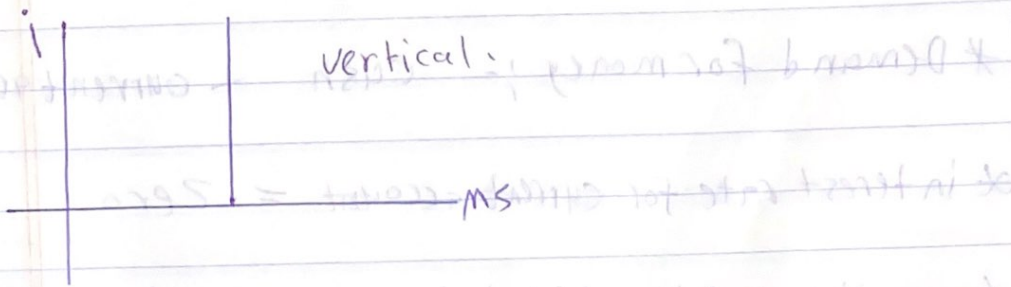 i
vertical.
MS